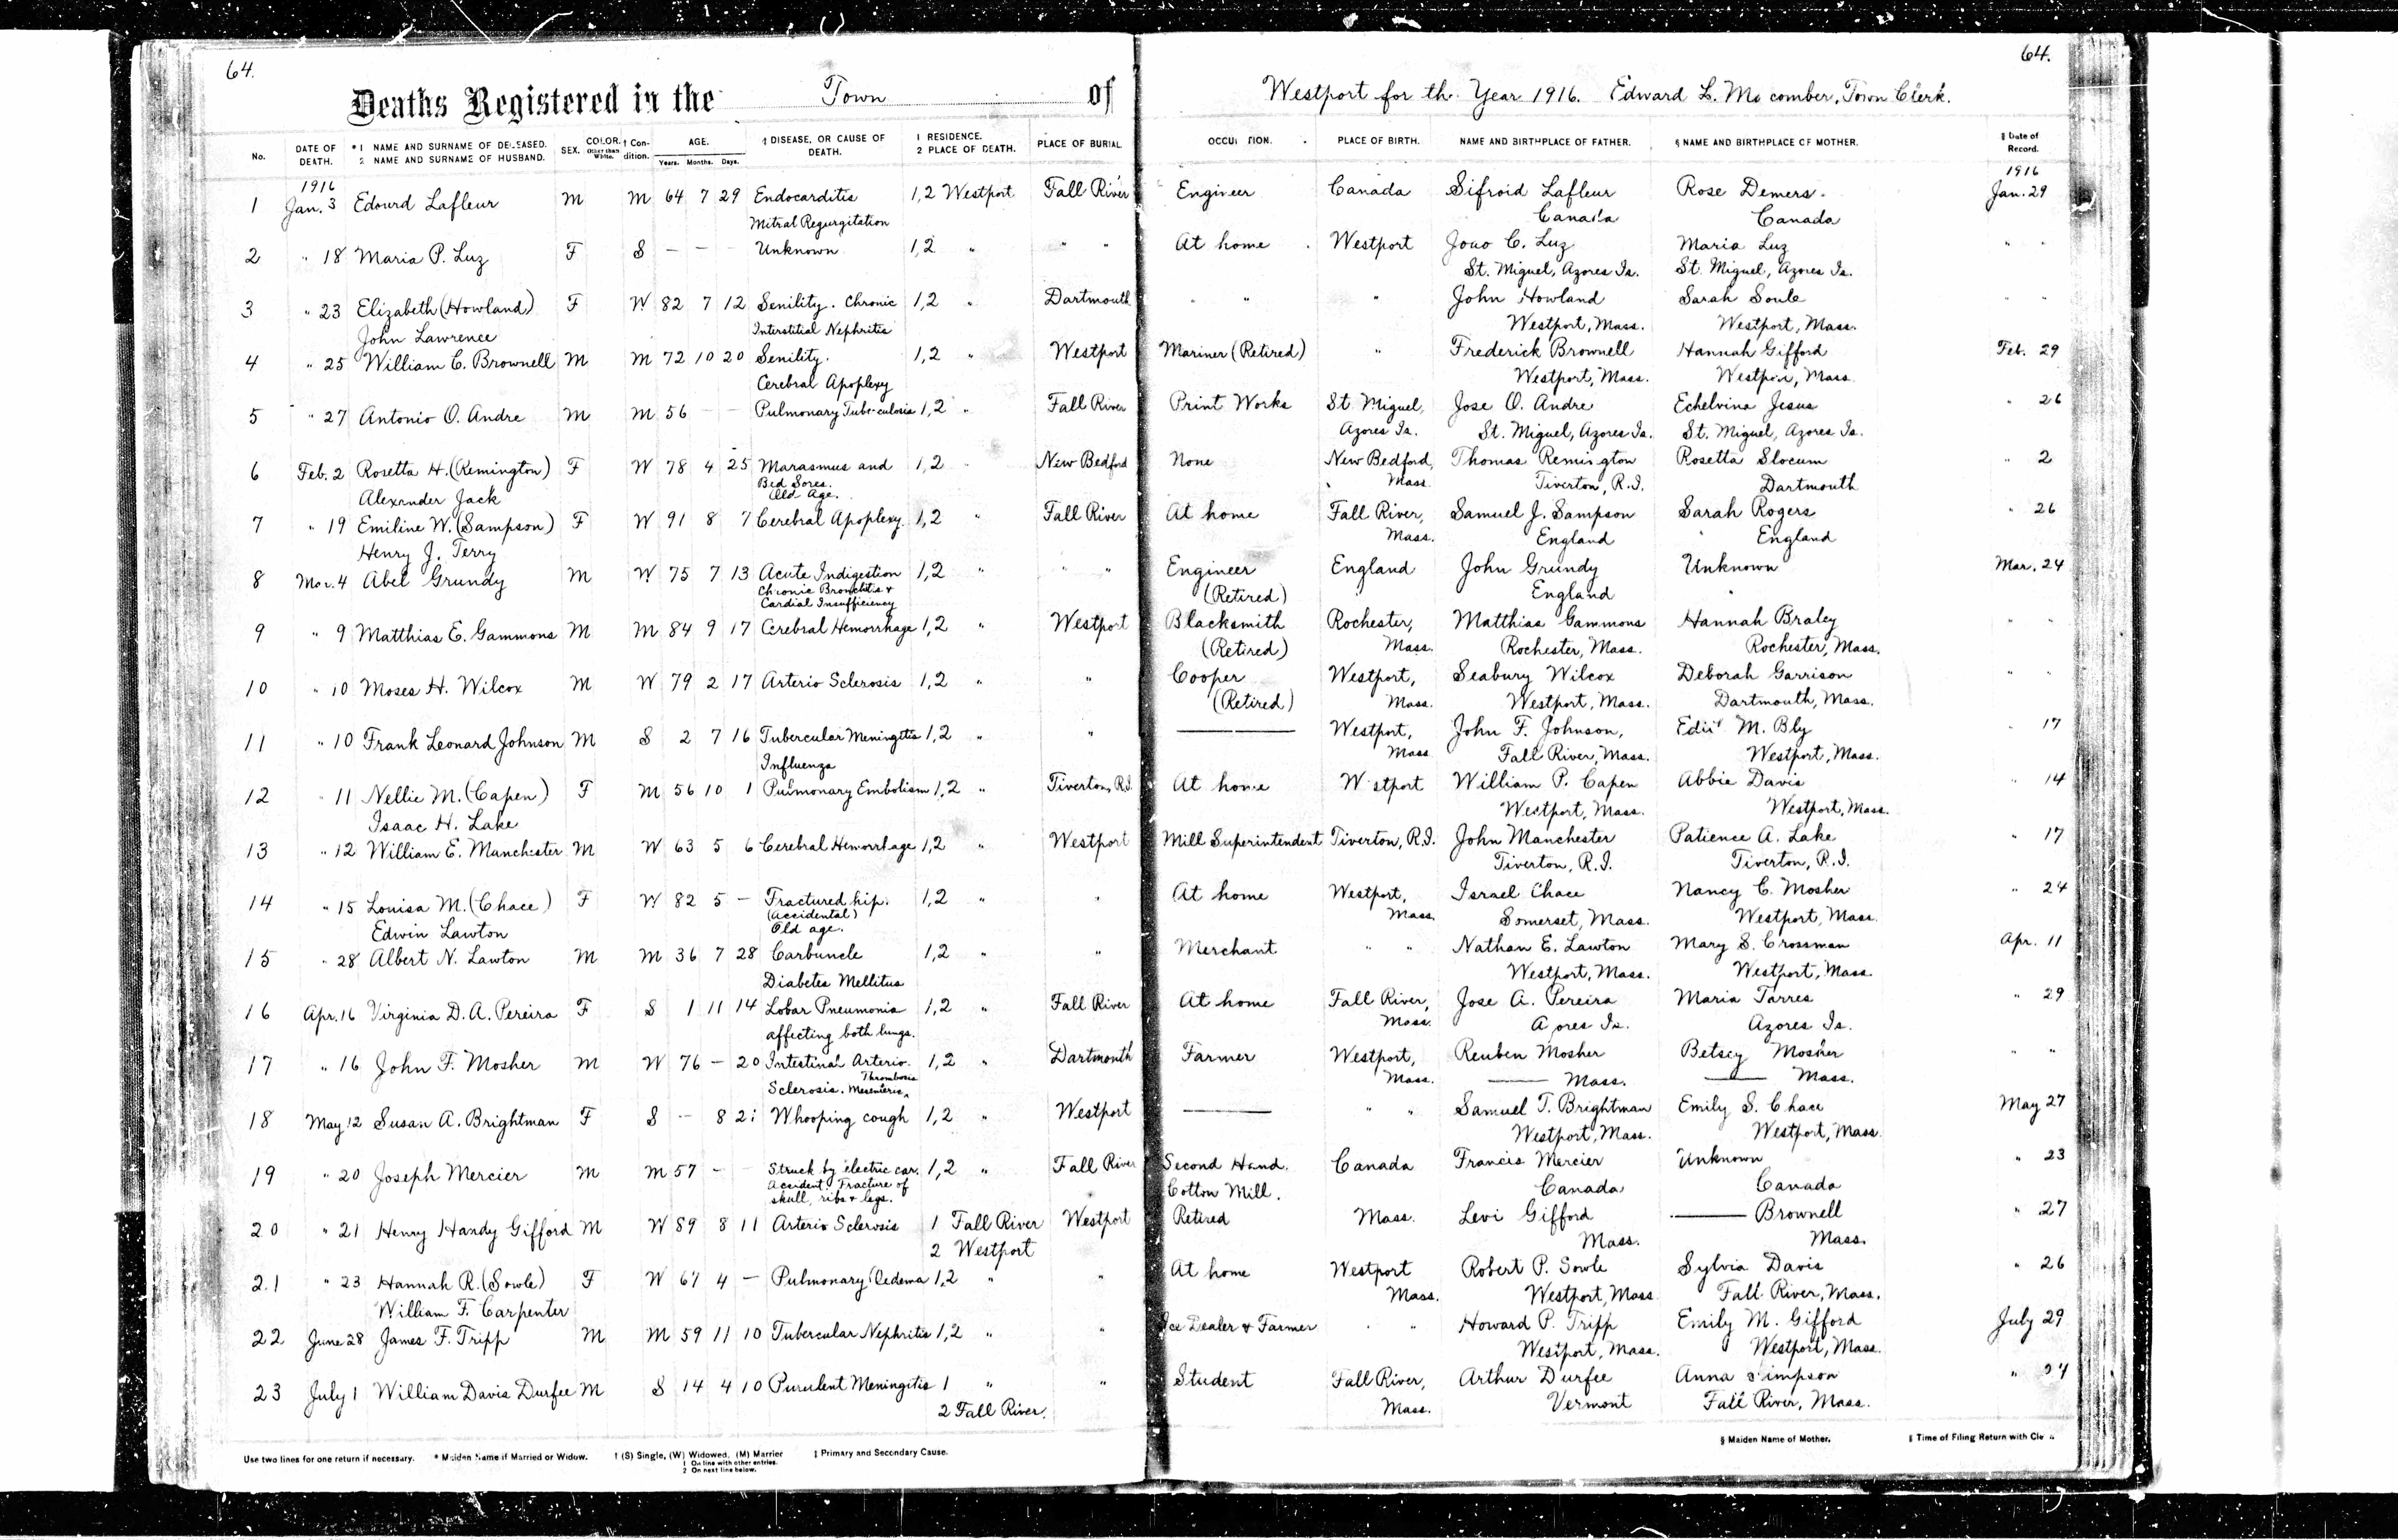 64.
64.
Deaths Registered in the Town of Westport for th. Year 1916. Edward L. Macomber, Town Clerk.
No. DATE OF DEATH. *1 NAME AND SURNAME OF DECEASED. 2 NAME AND SURNAME OF HUSBAND. SEX. COLOR. Other than White. † Condition. AGE. Years. Months. Days. ‡ DISEASE, OR CAUSE OF DEATH. 1 RESIDENCE. 2 PLACE OF DEATH. PLACE OF BURIAL OCCUPATION. PLACE OF BIRTH. NAME AND BIRTHPLACE OF FATHER. § NAME AND BIRTHPLACE OF MOTHER. ‖ Date of Record.
1916 1916
1 Jan. 3 Edourd Lafleur M M 64 7 29 Endocarditis 1,2 Westport Fall River Engineer Canada Sifroid Lafleur Rose Demers. Jan. 29
Mitral Regurgitation Canada Canada
2 " 18 Maria P. Luz F S — — Unknown 1,2 " " " At home Westport Joao C. Luz Maria Luz " "
St. Miguel, Azores Is. St. Miguel, Azores Is.
3 " 23 Elizabeth (Howland) F W 82 7 12 Senility. Chronic 1,2 " Dartmouth " " " John Howland Sarah Soule " "
John Lawrence Interstitial Nephritis Westport, Mass. Westport, Mass.
4 " 25 William C. Brownell M M 72 10 20 Senility. 1,2 " Westport Mariner (Retired) " Frederick Brownell Hannah Gifford Feb. 29
Cerebral Apoplexy Westport, Mass. Westport, Mass.
5 " 27 Antonio O. Andre M M 56 — — Pulmonary Tuberculosis 1,2 " Fall River Print Works St. Miguel, Jose O. Andre Echelvina Jesus " 26
Azores Is. St. Miguel, Azores Is. St. Miguel, Azores Is.
6 Feb. 2 Rosetta H. (Remington) F W 78 4 25 Marasmus and 1,2 " New Bedford None New Bedford, Thomas Remington Rosetta Slocum " 2
Alexander Jack Bed Sores. Old Age. Mass. Tiverton, R.I. Dartmouth
7 " 19 Emiline W. (Sampson) F W 91 8 7 Cerebral Apoplexy. 1,2 " Fall River At home Fall River, Samuel J. Sampson Sarah Rogers " 26
Henry J. Terry Mass. England England
8 Mar. 4 Abel Grundy M W 75 7 13 Acute Indigestion 1,2 " " " Engineer England John Grundy Unknown Mar. 24
Chronic Bronchitis + Cardial Insufficiency (Retired) England
9 " 9 Matthias E. Gammons M M 84 9 17 Cerebral Hemorrhage 1,2 " Westport Blacksmith Rochester, Matthias Gammons Hannah Braley " "
(Retired) Mass. Rochester, Mass. Rochester, Mass.
10 " 10 Moses H. Wilcox M W 79 2 17 Arterio Sclerosis 1,2 " " Cooper Westport, Seabury Wilcox Deborah Garrison " "
(Retired) Mass. Westport, Mass. Dartmouth, Mass.
11 " 10 Frank Leonard Johnson M S 2 7 16 Tubercular Meningitis 1,2 " " — Westport, John F. Johnson, Edith M. Bly " 17
Influenza Mass Fall River, Mass. Westport, Mass.
12 " 11 Nellie M. (Capen) F M 56 10 1 Pulmonary Embolism 1,2 " Tiverton, R.I. At home Westport William P. Capen Abbie Davis " 14
Isaac H. Lake Westport, Mass. Westport, Mass.
13 " 12 William E. Manchester M W 63 5 6 Cerebral Hemorrhage 1,2 " Westport Mill Superintendent Tiverton, R.I. John Manchester Patience A. Lake " 17
Tiverton, R.I. Tiverton, R.I.
14 " 15 Louisa M. (Chace) F W 82 5 — Fractured hip. 1,2 " " At home Westport, Israel Chace Nancy C. Mosher " 24
Edwin Lawton (Accidental) Old age. Mass. Somerset, Mass. Westport, Mass.
15 " 28 Albert N. Lawton M M 36 7 28 Carbuncle 1,2 " " Merchant " " Nathan E. Lawton Mary S. Crossman Apr. 11
Diabetes Mellitus Westport, Mass. Westport, Mass.
16 Apr. 16 Virginia D. A. Pereira F S 1 11 14 Lobar Pneumonia 1,2 " Fall River At home Fall River, Jose A. Pereira Maria Tarres " 29
affecting both lungs. Mass. Azores Is. Azores Is.
17 " 16 John F. Mosher M W 76 — 20 Intestinal Arterio. 1,2 " Dartmouth Farmer Westport, Reuben Mosher Betsey Mosher " "
Sclerosis. Thrombosis Mesenteric Mass. — Mass. — Mass.
18 May 12 Susan A. Brightman F S — 8 Whooping cough 1,2 " Westport — " " Samuel T. Brightman Emily S. Chace May 27
Westport, Mass. Westport, Mass.
19 " 20 Joseph Mercier M M 57 — — Struck by electric car. 1,2 " Fall River Second Hand. Canada Francis Mercier Unknown " 23
Accident. Fracture of skull, ribs + legs. Cotton Mill. Canada Canada
20 " 21 Henry Handy Gifford M W 89 8 11 Arterio Sclerosis 1 Fall River Westport Retired Mass. Levi Gifford — Brownell " 27
2 Westport Mass. Mass.
21 " 23 Hannah R. (Sowle) F W 67 4 — Pulmonary Oedema 1,2 " " At home Westport Robert P. Sowle Sylvia Davis " 26
William F. Carpenter Mass. Westport, Mass Fall River, Mass.
22 June 28 James F. Tripp M M 59 11 10 Tubercular Nephritis 1,2 " " Ice Dealer + Farmer " " Howard P. Tripp Emily M. Gifford July 29
Westport, Mass. Westport, Mass.
23 July 1 William Davis Durfee M S 14 4 10 Purulent Meningitis 1 " " Student Fall River, Arthur Durfee Anna Simpson "
2 Fall River. Mass. Vermont Fall River, Mass.
Use two lines for one return if necessary. * Maiden Name if Married or Widow. † (S) Single, (W) Widowed, (M) Married ‡ Primary and Secondary Cause. § Maiden Name of Mother. ‖ Time of Filing Return with Clerk
1 On line with other entries.
2 On next line below.